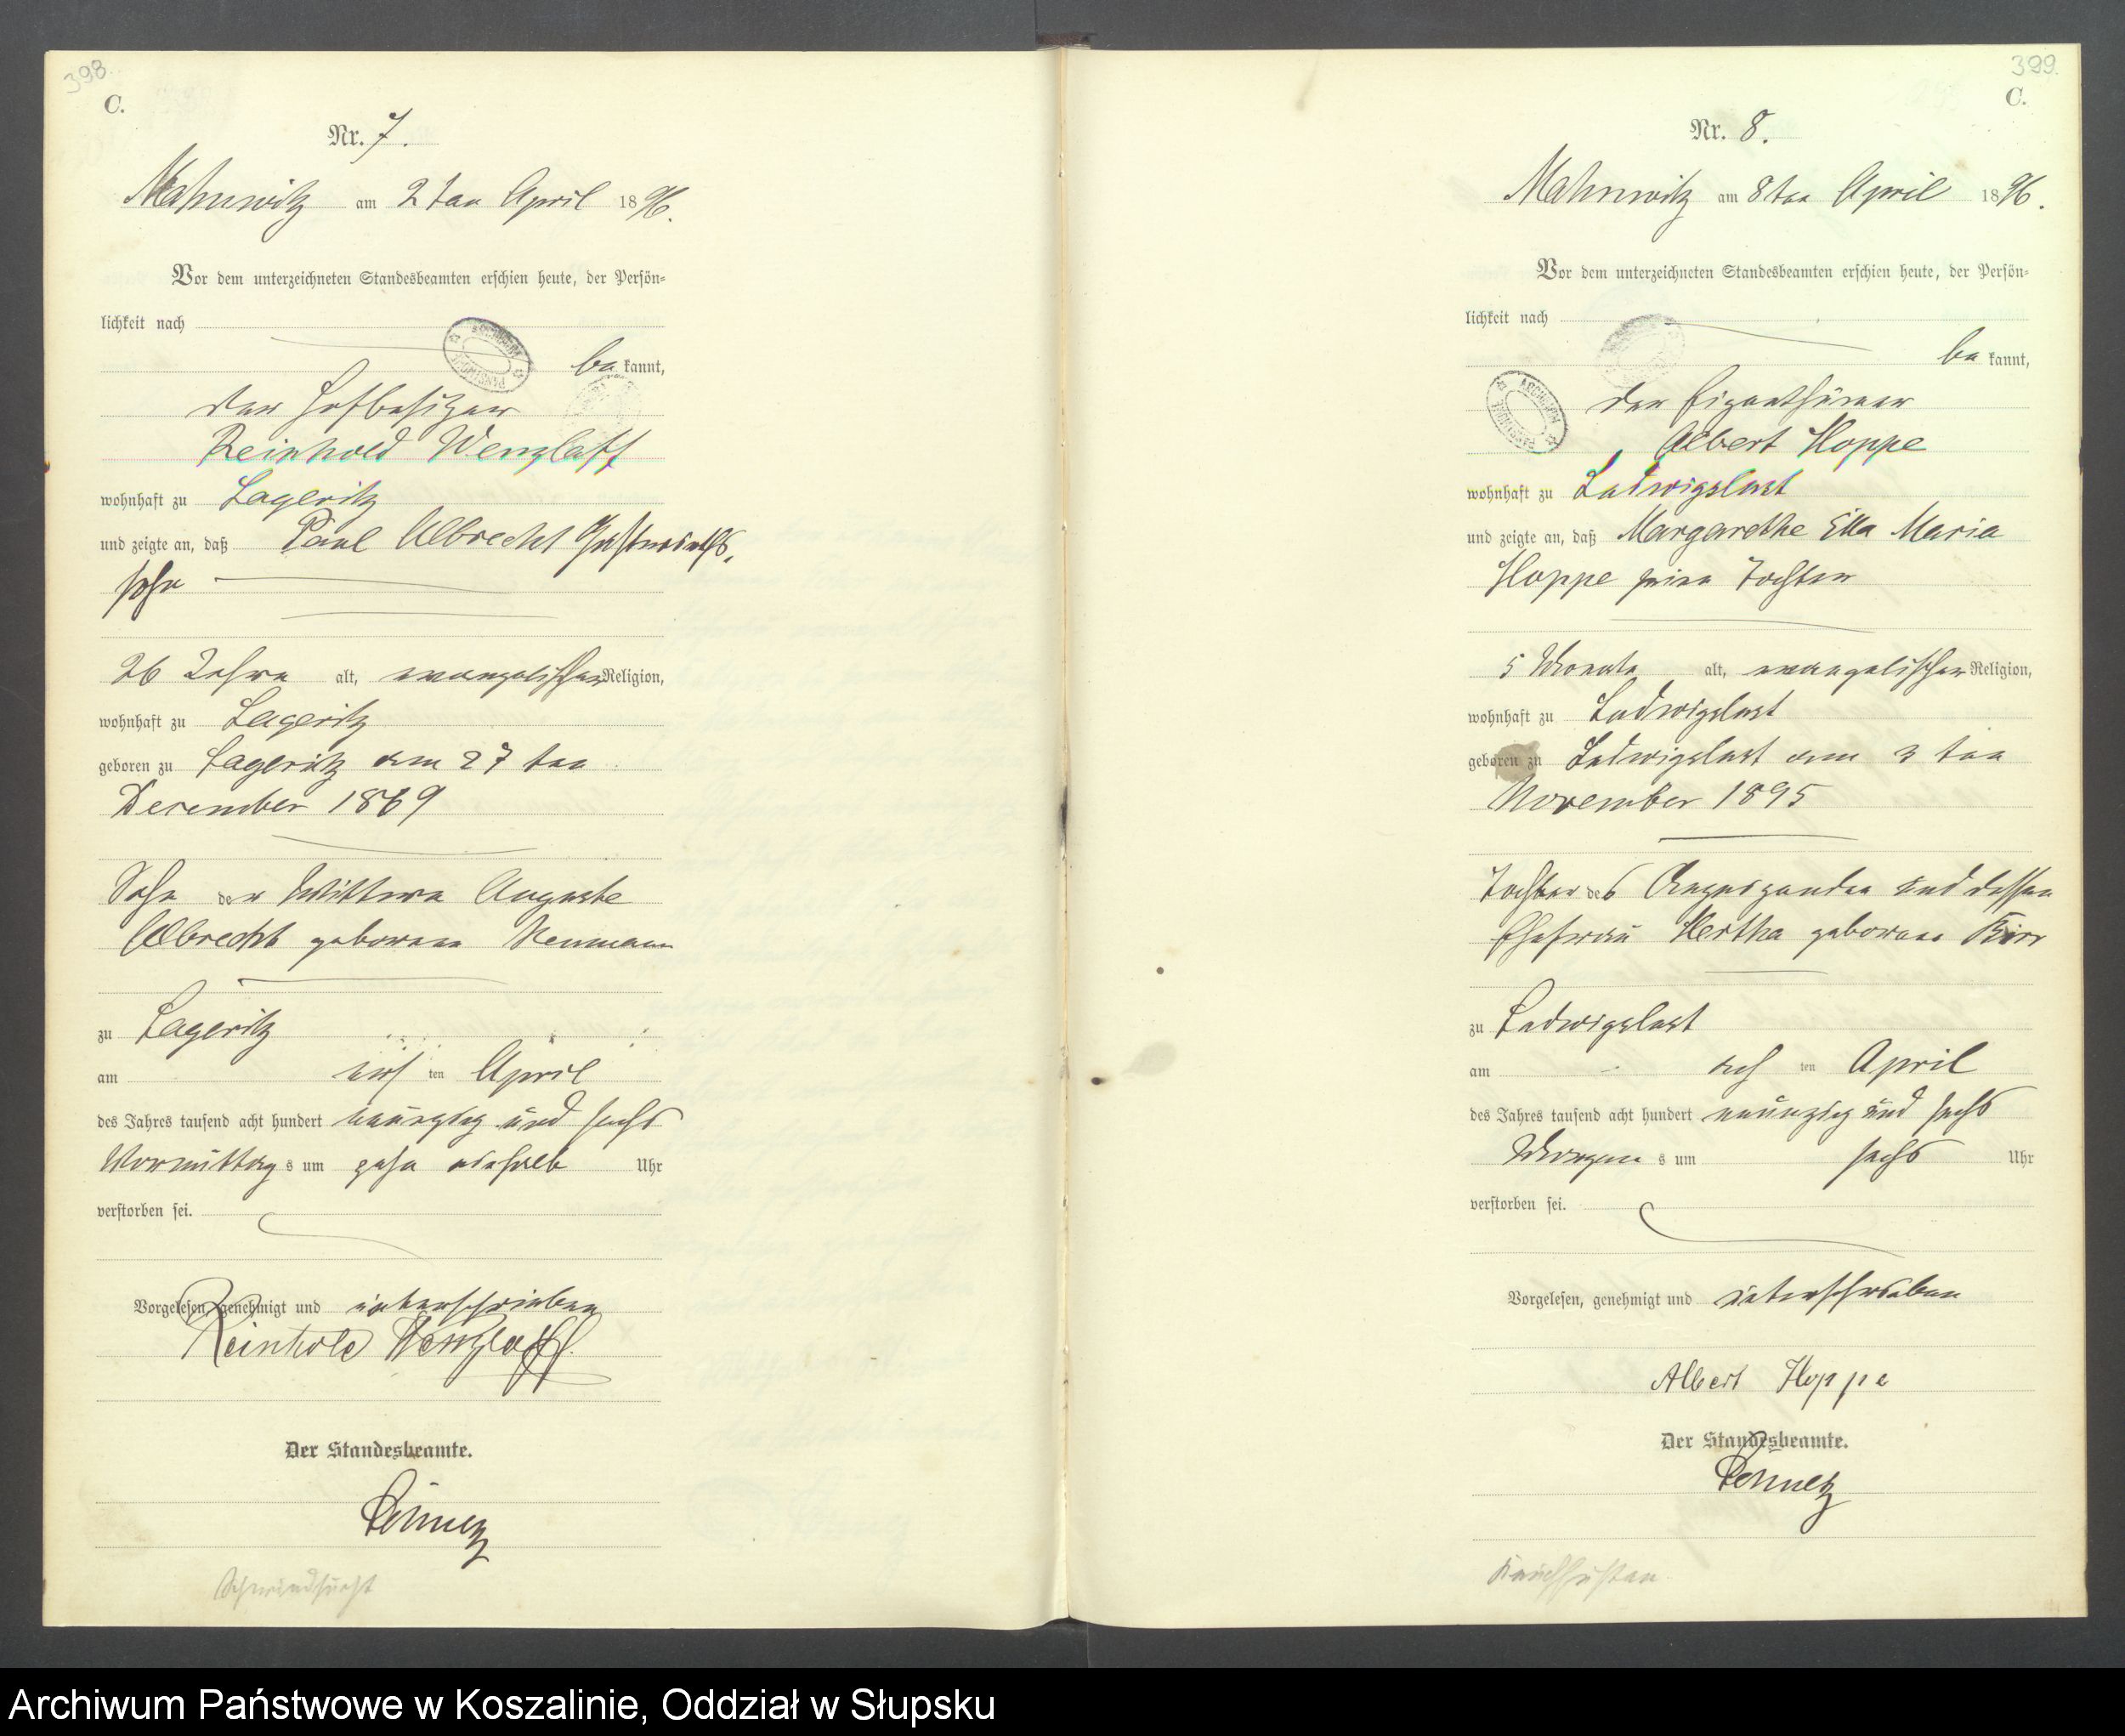 398.
C.
Nr. 7.
Mahnwitz am 2 ten April 1896.
Vor dem unterzeichneten Standesbeamten erschien heute, der Persön-
lichkeit nach
be kannt,
der Hofbesitzer
Reinhold Wenzlaff
wohnhaft zu Lageritz
und zeigte an, daß Paul Albrecht Gastwirths,
sohn
26 Jahre alt, evangelischer Religion,
wohnhaft zu Lageritz
geboren zu Lageritz am 27 ten
December 1869
Sohn der Wittwe Auguste
Albrecht geborene Neumann
zu Lageritz
am ten April
des Jahres tausend acht hundert neunzig und sechs
Vormittags um zehn einhalb Uhr
verstorben sei.
Vorgelesen, genehmigt und unterschrieben
Reinhold Wenzlaff.
Der Standesbeamte.
Schwindsucht
399.
C.
Nr. 8.
Mahnwitz am 8 ten April 1896.
Vor dem unterzeichneten Standesbeamten erschien heute, der Persön-
lichkeit nach
be kannt,
der Eigenthümer
Albert Hoppe
wohnhaft zu Ludwigslust
und zeigte an, daß Margarethe Ella Maria
Hoppe seine Tochter
5 Monate alt, evangelischer Religion,
wohnhaft zu Ludwigslust
geboren zu Ludwigslust am 3 ten
November 1895
Tochter des Anzeigenden und dessen
Ehefrau Hertha geborene
zu Ludwigslust
am ach ten April
des Jahres tausend acht hundert neunzig und sechs
Morgens um sechs Uhr
verstorben sei.
Vorgelesen, genehmigt und unterschrieben
Albert Hoppe
Der Standesbeamte.
Keuchhusten
Archiwum Państwowe w Koszalinie, Oddział w Słupsku